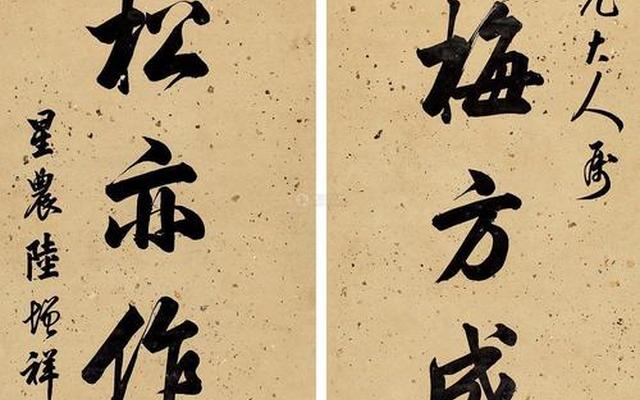 大人属
梅方成
松亦作
星農陸增祥